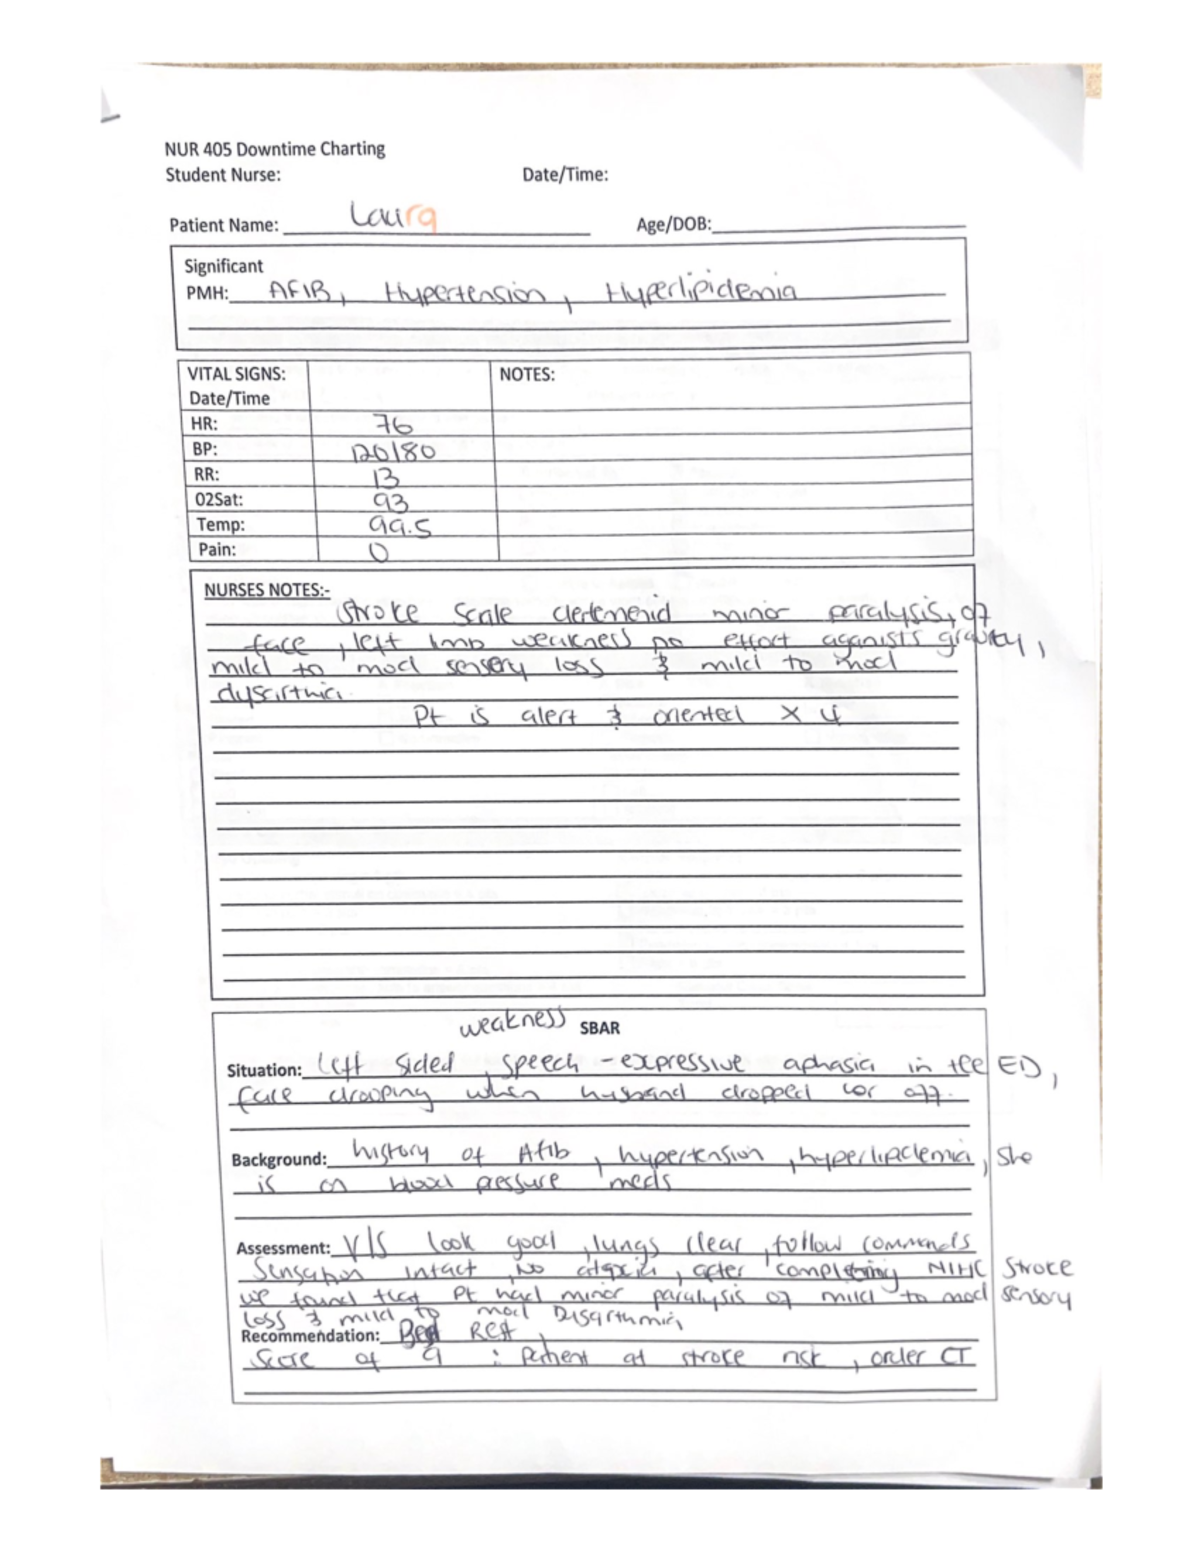 NUR 405 Downtime Charting
Student Nurse: Date/Time:
Patient Name: Laura Age/DOB:
Significant
PMH: AFIB, Hypertension, Hyperlipidemia
VITAL SIGNS: NOTES:
Date/Time
HR: 76
BP: 120/80
RR: 13
O2Sat: 93
Temp: 99.5
Pain: 0
NURSES NOTES:-
Stroke Scale minor paralysis, of
face, left limb weakness no effort aganists gravity,
mild to mod sensery loss & mild to mod
dysarthria.
Pt is alert & oriented x 4
weakness SBAR
Situation: Left sided, speech - expressive aphasia in the ED,
face drooping when husband dropped her off.
Background: history of Afib, hypertension, hyperlipidemia, she
is on blood pressure meds
Assessment: V/S look good, lungs clear, follow commands
Sensation intact, No, after completing NIHC Stroke
we found that Pt had minor paralysis of mild to mod sensory
loss & mild to mod Disarthmia
Recommendation: Bed Rest,
Score of 9 : Patient at stroke risk, order CT